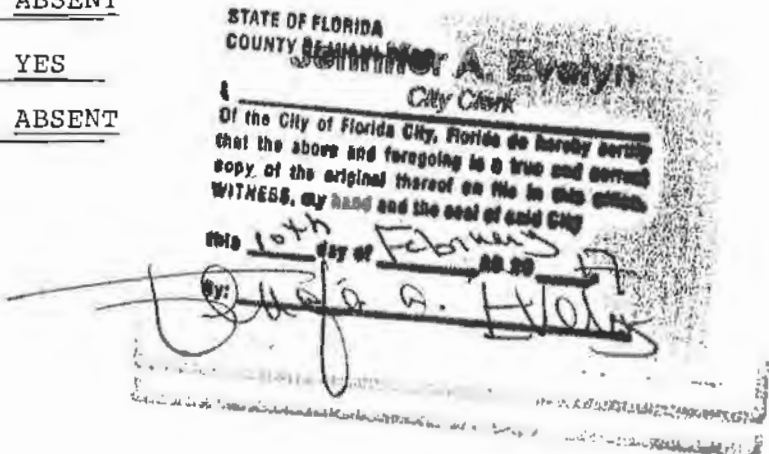 ABSENT
YES
ABSENT
STATE OF FLORIDA
COUNTY
Jennifer A. Evelyn
City Clerk
I
Of the City of Florida City, Florida do hereby certify
that the above and foregoing is a true and correct
copy of the original thereof on file in this office.
WITNESS, my hand and the seal of said City
this 10th day of February 17
By: